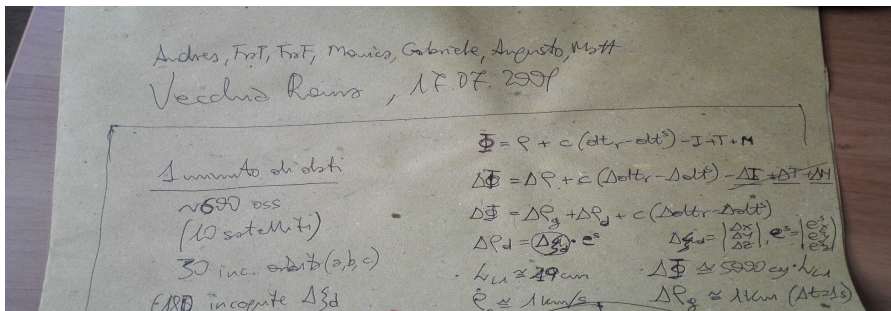 Andres, FraT, FraF, Monica, Gabriele, Augusto, Matt
Vecchia Roma, 17.07.2009
1 minuto di dati
~600 oss
(10 satelliti)
30 inc. orbit (a,b,c)
180 incognite Δξd
Φ = ρ + c (dtr - dtˢ) - I + T + N
ΔΦ = Δρ + c (Δdtr - Δdtˢ) - ΔI + ΔT + ΔN
ΔΦ = Δρg + Δρd + c (Δdtr - Δdtˢ)
Δρd = Δξd · eˢ Δξd = |ΔX ΔY ΔZ|, eˢ =
L1 ≃ 19 cm ΔΦ ≃ 5000 cy · L1
ρ̇ ≃ 1 km/s Δρg ≃ 1 km (Δt=1s)